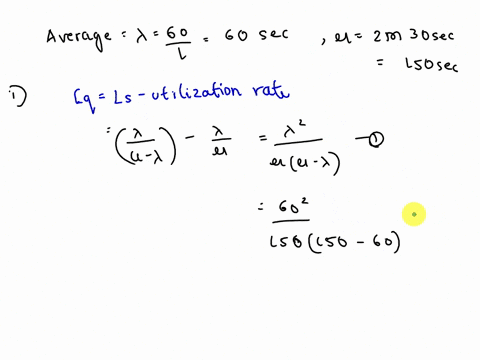 Average = λ = 60/1 = 60 sec , μ = 2m 30sec
= 150sec
1) Lq = Ls - utilization rate
= (λ/(μ-λ)) - λ/μ = λ²/(μ(μ-λ)) — ①
= 60²/(150(150 - 60))